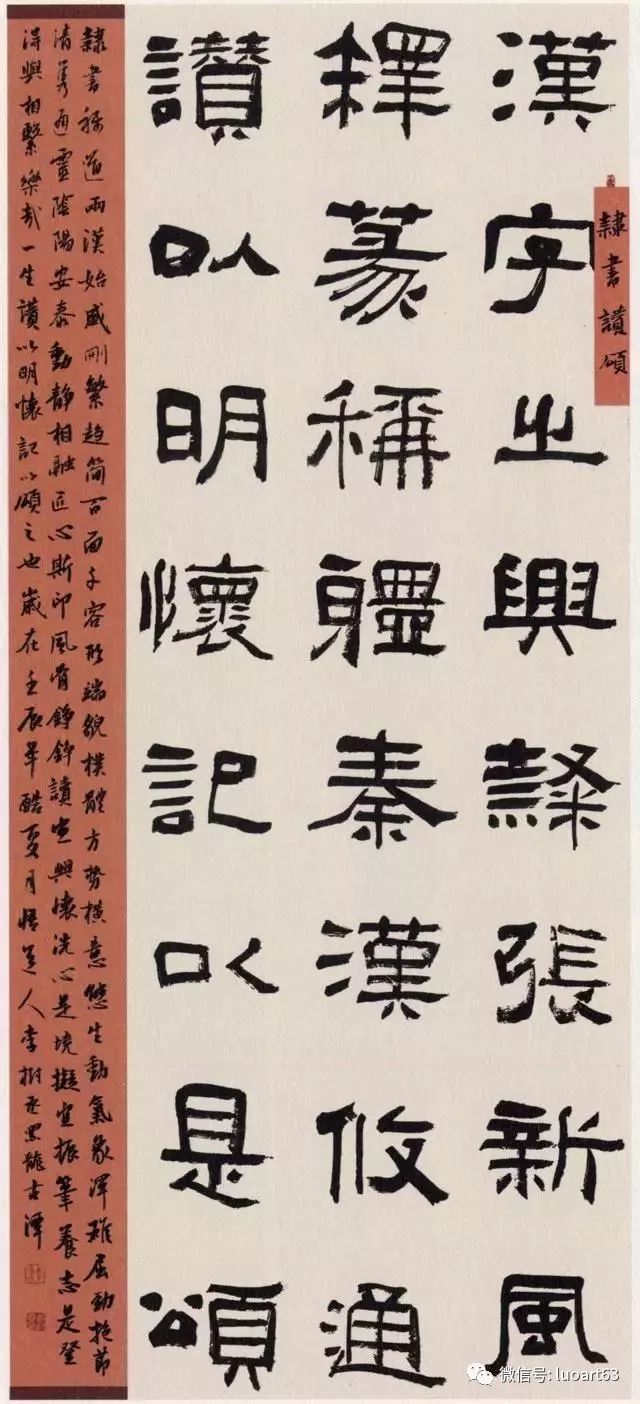 隸書讚頌
漢字之興隸張新風
釋篆稱疆秦漢攸通
讚以明懷記以是頌
隸書稱道兩漢始盛刪繁趋简百面千容形端貌樸體方勢橫意悠生動氣象渾雄屈勁節
清通靈陰陽安泰動静相融匠心斯印風骨錚錚讀興懷洗心是境擬宣振筆養志是登
得興相繫樂哉一生讚以明懷記以頌之也歲在壬辰年酷夏月悟道人李樹黑龍古潭
微信号: luoart63